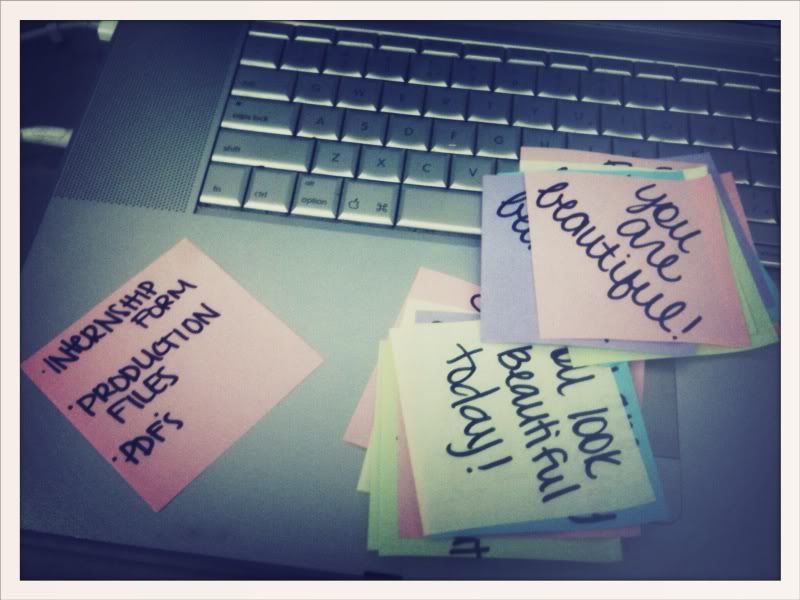 Q W E R T
caps lock A S D F G
shift Z X C V
fn ctrl alt option ⌘
• INTERNSHIP
FORM
• PRODUCTION
FILES
• PDF'S
you
are
beautiful!
look
Beautiful
today!